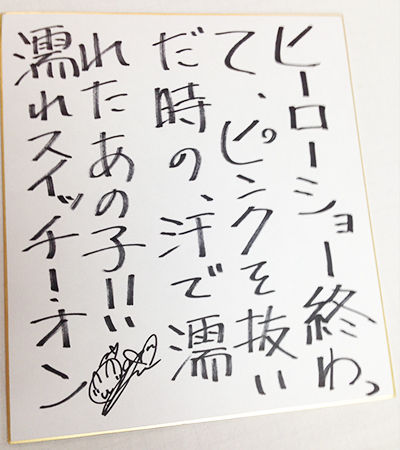 ヒーローショー終わっ
て、ピンクを抜い
だ時の、汗で濡
れたあの子!!
濡れスイッチ!オン